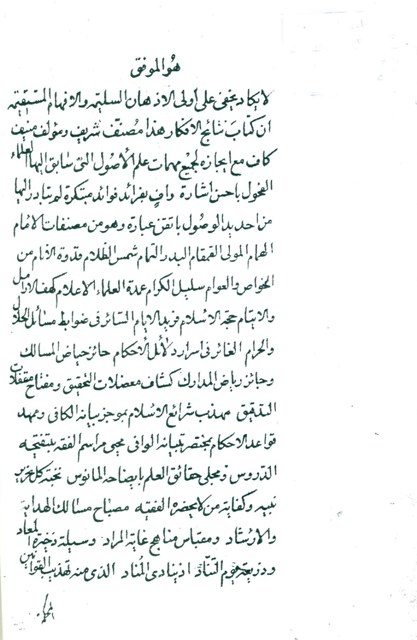 هو الموفق
لا يكاد يخفى على أولى الاذهان السليمة والافهام المستقيمة
ان كتاب نتائج الافكار هذا مصنف شريف ومؤلف منيف
كاف مع ايجازه لجميع مهمات علم الأصول التى سابق اليها العلماء
الفحول باحسن اشارة واف بفرائد فوائد مبتكرة لم يتبادر اليها
من احد يد الوصول باتقن عبارة وهو من مصنفات الامام
الهمام المولى القمقام البدر التمام شمس الظلام قدوة الأنام من
الخواص والعوام سليل الكرام عمدة العلماء الاعلام كهف الارامل
والايتام حجة الاسلام فريد الايام السائر فى ضوابط مسائل الحلال
والحرام الغائر فى اسرار دلائل الأحكام حائز حياض المسالك
وجائز رياض المدارك كشاف معضلات التحقيق ومفتاح مقفلات
التدقيق مهذب شرائع الاسلام بموجز بيانه الكافى وممهد
قواعد الاحكام بمختصر تبيانه الوافى محيى مراسم الفقه بتنقيحه
الدروس ومجلى حقائق العلم بايضاحه المانوس نخبة كل
نبيه وكفاية من لا يحضره الفقيه مصباح مسالك الهداية
والارشاد ومقباس مناهج غاية المراد وسيلة ذخيرة المعاد
وذريعة يوم التناد اذ ينادى المناد الذى منه تهذيب القوانين